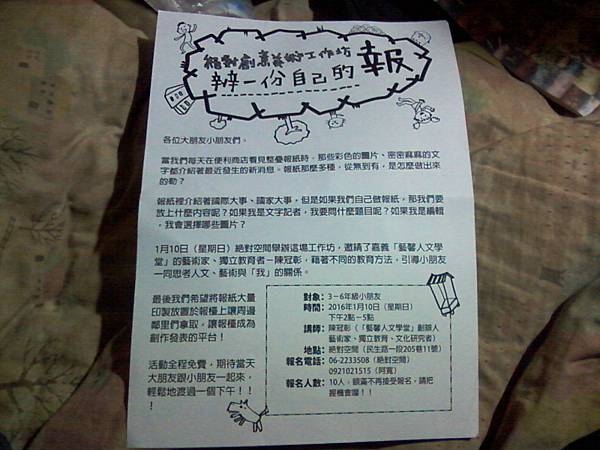 絕對創意美術工作坊
辦一份自己的報
各位大朋友小朋友們。
當我們每天在便利商店看見整疊報紙時，那些彩色的圖片、密密麻麻的文
字都介紹著最近發生的新消息。報紙那麼多種，從無到有，是怎麼做出來
的勒？
報紙裡介紹著國際大事、國家大事，但是如果我們自己做報紙，那我們要
放上什麼內容呢？如果我是文字記者，我要問什麼題目呢？如果我是編輯
，我會選擇哪些圖片？
1月10日（星期日）絕對空間舉辦這場工作坊，邀請了嘉義「藝馨人文學
堂」的藝術家、獨立教育者－陳冠彰，藉著不同的教育方法，引導小朋友
一同思考人文、藝術與「我」的關係。
最後我們希望將報紙大量
印製放置於報檯上讓周邊
鄰里們拿取，讓報檯成為
創作發表的平台！
活動全程免費，期待當天
大朋友跟小朋友一起來，
輕鬆地渡過一個下午！！
！
對象：3－6年級小朋友
時間：2016年1月10日（星期日）
下午2點－5點
講師：陳冠彰（「藝馨人文學堂」創辦人
藝術家、獨立教育、文化研究者）
地點：絕對空間（民生路一段205巷11號）
報名電話：06-2233508（絕對空間）
0921021515（阿寬）
報名人數：10人，額滿不再接受報名，請把
握機會囉！！